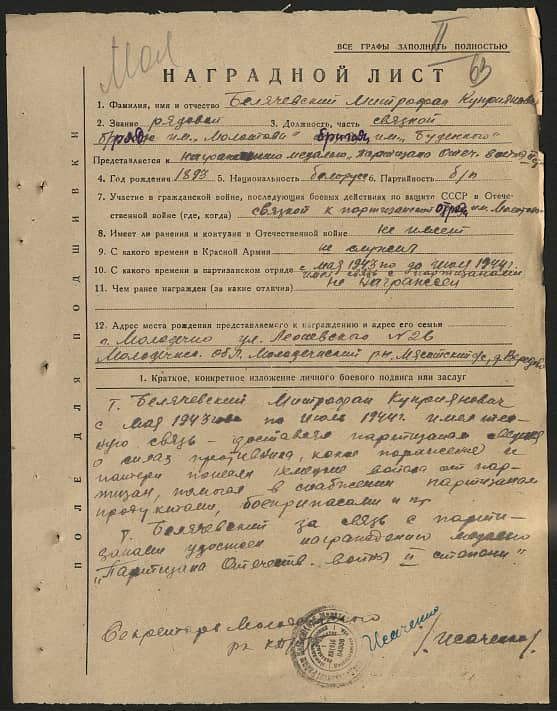 Мол
II
ВСЕ ГРАФЫ ЗАПОЛНЯТЬ ПОЛНОСТЬЮ
63
НАГРАДНОЙ ЛИСТ
1. Фамилия, имя и отчество Белячевский Митрофан Куприянович
2. Звание рядовой 3. Должность, часть связной
отряда им. "Молотова" бригады им. "Буденного"
Представляется к награждению медалью, партизана Отеч. войны II
4. Год рождения 1893 5. Национальность белорус 6. Партийность б/п
7. Участие в гражданской войне, последующих боевых действиях по защите СССР в Отече-
ственной войне (где, когда) связной к партизанской отряд им. Молотова
8. Имеет ли ранения и контузия в Отечественной войне не имеет
9. С какого времени в Красной Армии не служил
10. С какого времени в партизанском отряде с мая 1943 по до июля 1944 г.
имел связь с партизанами
11. Чем ранее награжден (за какие отличия) не награжден
12. Адрес места рождения представляемого к награждению и адрес его семьи
г. Молодечно ул. № 26
Молодечн. обл. Молодечнский рн. с/с, д.
1. Краткое, конкретное изложение личного боевого подвига или заслуг
Т. Белячевский Митрофан Куприянович
с мая 1943 по июль 1944 г. имел тес-
ную связь - доставлял партизанам
о силах противника, какое поражение и
потери понесли войска от пар-
тизан, помогал в снабжении партизанам
продуктами, боеприпасами и пр
Т. Белячевский за связь с парти-
занами удостоен награждению медалью
"Партизана Отечеств. войны II степени"
Секретарь Молодечнского
рк КП(б)Б Исаченко /Исаченко/
ПОЛЕ ДЛЯ ПОДШИВКИ